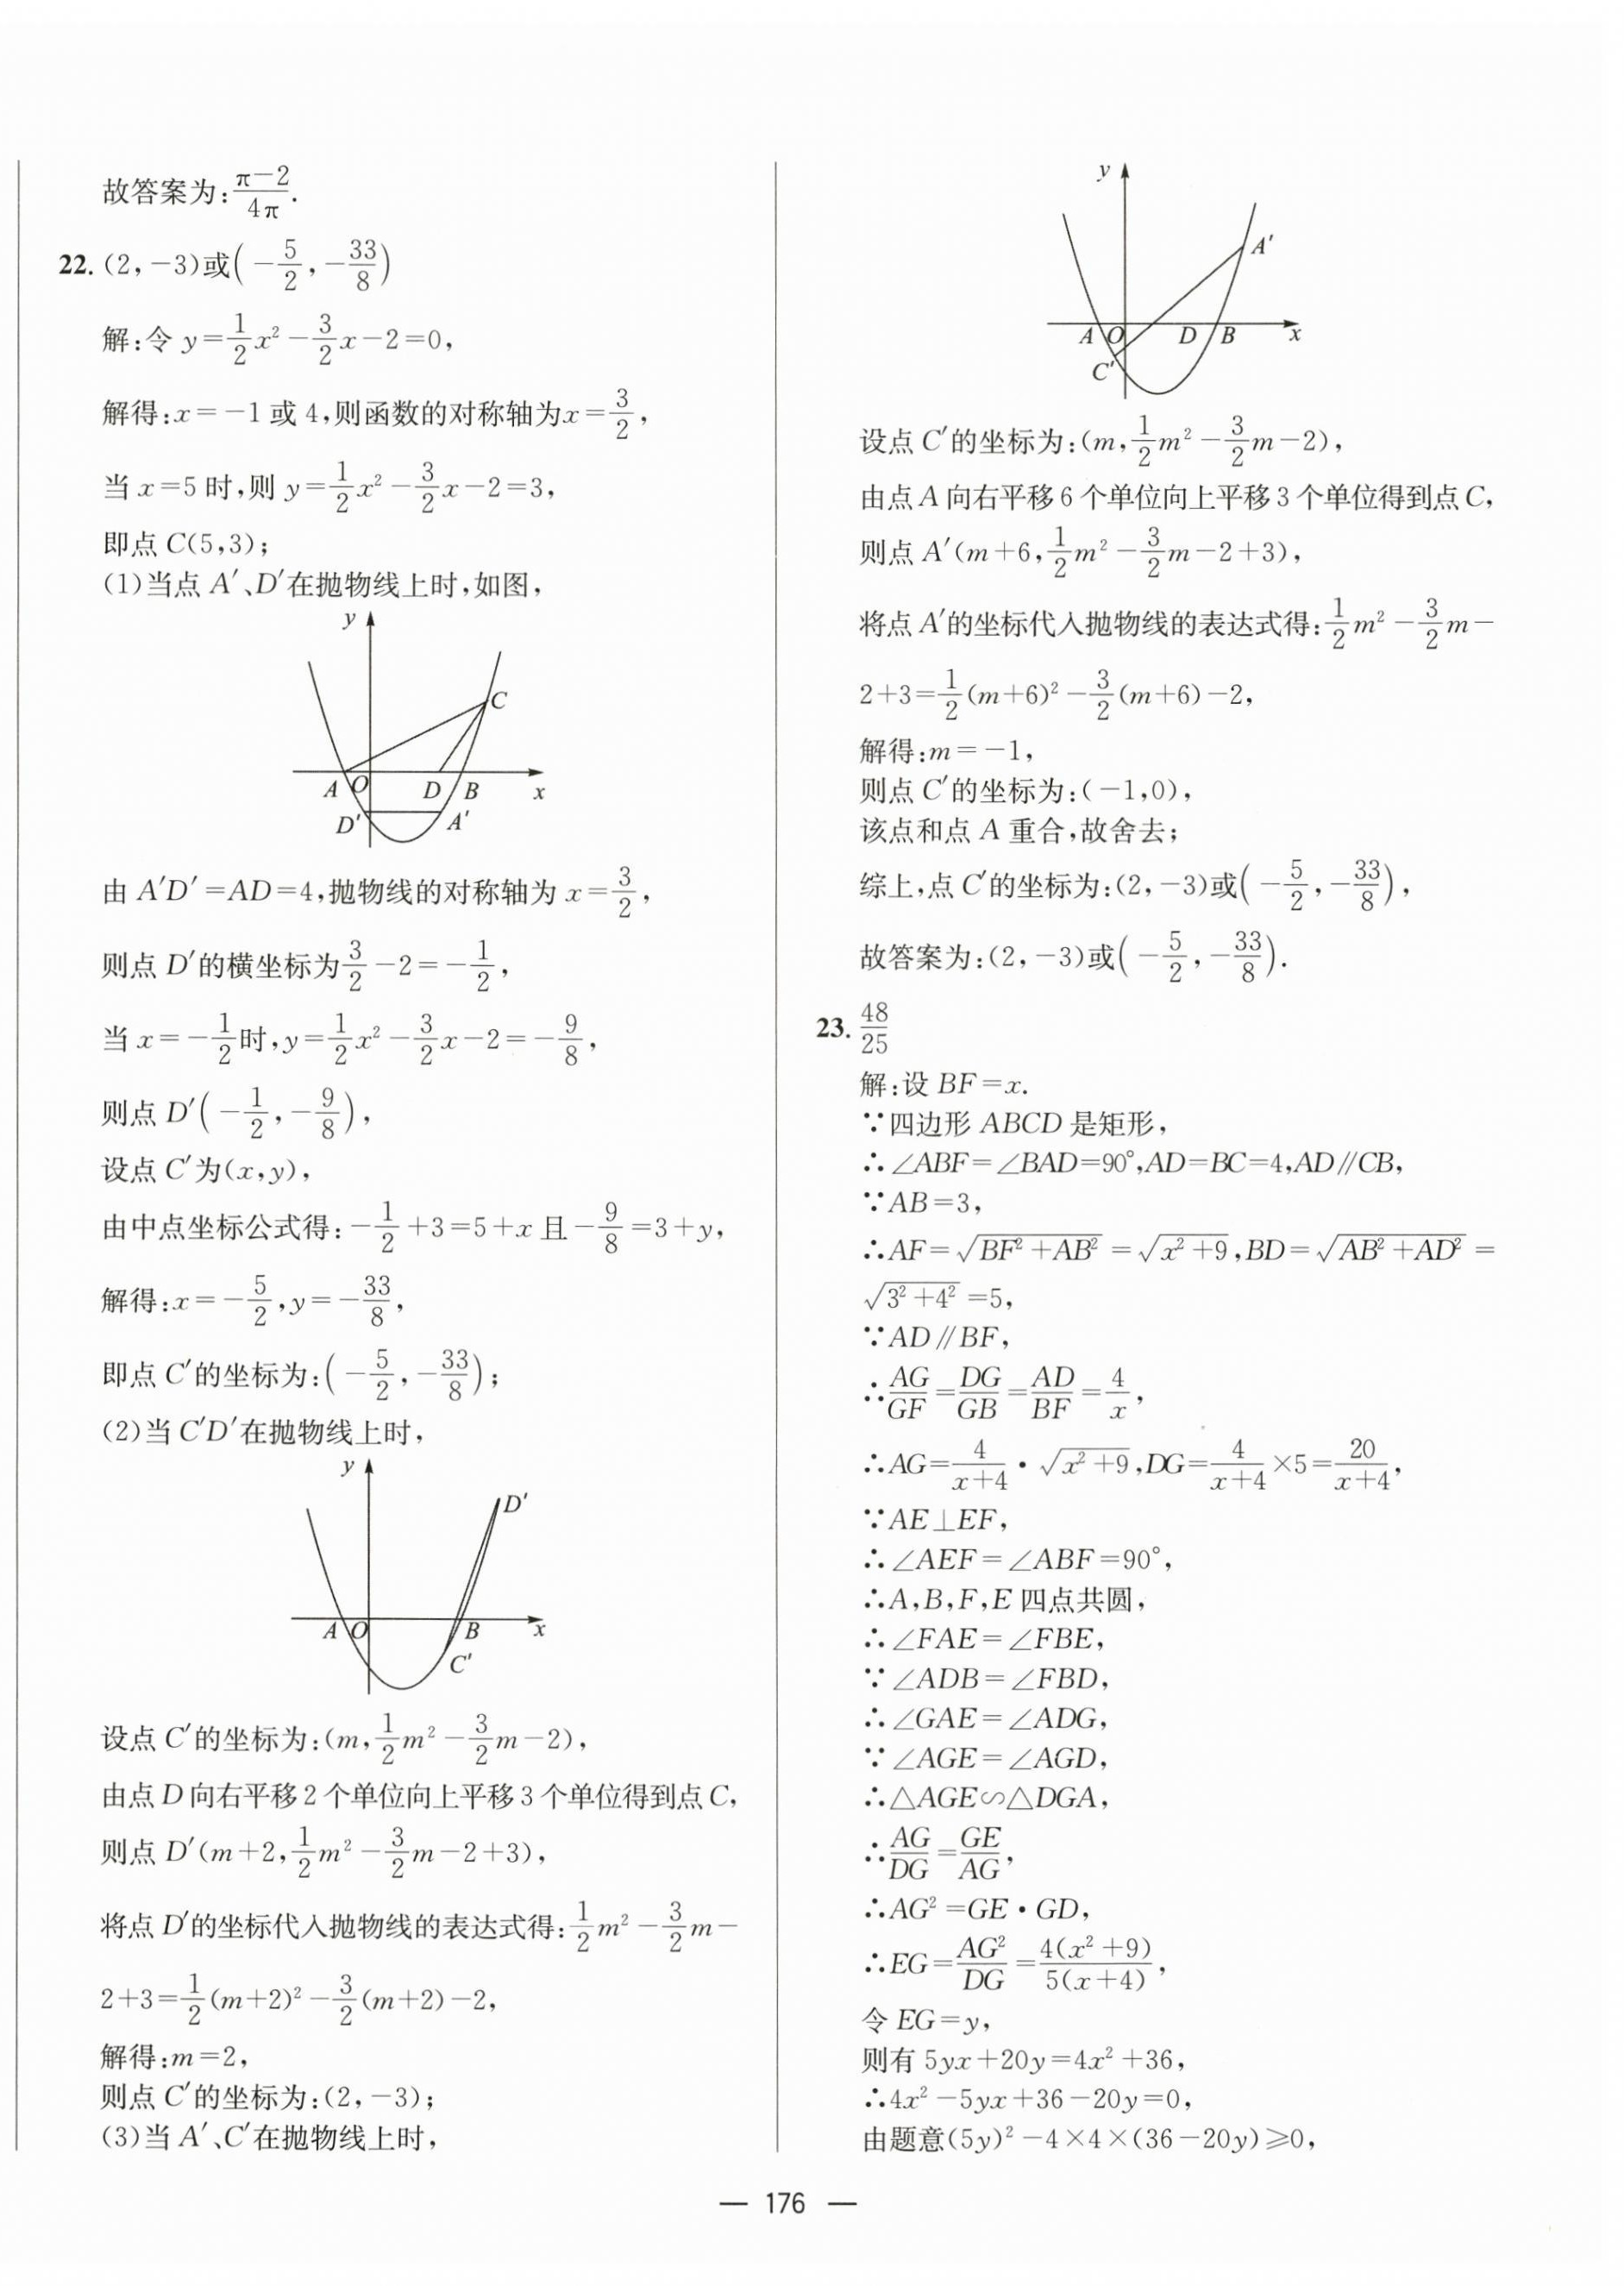 故答案为:$\frac{π-2}{4π}$.
22. (2,-3)或$\left(-\frac{5}{2},-\frac{33}{8}\right)$
解:令 $y=\frac{1}{2}x^2-\frac{3}{2}x-2=0$,
解得:x=-1 或 4,则函数的对称轴为$x=\frac{3}{2}$,
当 x=5 时,则 $y=\frac{1}{2}x^2-\frac{3}{2}x-2=3$,
即点 C(5,3);
(1)当点 A′、D′在抛物线上时,如图,
y
C
A O D B x
D′ A′
由 A′D′=AD=4,抛物线的对称轴为 $x=\frac{3}{2}$,
则点 D′的横坐标为$\frac{3}{2}-2=-\frac{1}{2}$,
当 $x=-\frac{1}{2}$时,$y=\frac{1}{2}x^2-\frac{3}{2}x-2=-\frac{9}{8}$,
则点 D′$\left(-\frac{1}{2},-\frac{9}{8}\right)$,
设点 C′为(x,y),
由中点坐标公式得:$-\frac{1}{2}+3=5+x$ 且$-\frac{9}{8}=3+y$,
解得:$x=-\frac{5}{2},y=-\frac{33}{8}$,
即点 C′的坐标为:$\left(-\frac{5}{2},-\frac{33}{8}\right)$;
(2)当 C′D′在抛物线上时,
y
D′
A O B x
C′
设点 C′的坐标为:$(m,\frac{1}{2}m^2-\frac{3}{2}m-2)$,
由点 D 向右平移 2 个单位向上平移 3 个单位得到点 C,
则点 D′$(m+2,\frac{1}{2}m^2-\frac{3}{2}m-2+3)$,
将点 D′的坐标代入抛物线的表达式得:$\frac{1}{2}m^2-\frac{3}{2}m-$
$2+3=\frac{1}{2}(m+2)^2-\frac{3}{2}(m+2)-2$,
解得:m=2,
则点 C′的坐标为:(2,-3);
(3)当 A′、C′在抛物线上时,
y
A′
A O D B x
C′
设点 C′的坐标为:$(m,\frac{1}{2}m^2-\frac{3}{2}m-2)$,
由点 A 向右平移 6 个单位向上平移 3 个单位得到点 C,
则点 A′$(m+6,\frac{1}{2}m^2-\frac{3}{2}m-2+3)$,
将点 A′的坐标代入抛物线的表达式得:$\frac{1}{2}m^2-\frac{3}{2}m-$
$2+3=\frac{1}{2}(m+6)^2-\frac{3}{2}(m+6)-2$,
解得:m=-1,
则点 C′的坐标为:(-1,0),
该点和点 A 重合,故舍去;
综上,点 C′的坐标为:(2,-3)或$\left(-\frac{5}{2},-\frac{33}{8}\right)$,
故答案为:(2,-3)或$\left(-\frac{5}{2},-\frac{33}{8}\right)$.
23. $\frac{48}{25}$
解:设 BF=x.
∵四边形 ABCD 是矩形,
∴∠ABF=∠BAD=90°,AD=BC=4,AD∥CB,
∵AB=3,
∴$AF=\sqrt{BF^2+AB^2}=\sqrt{x^2+9}$,$BD=\sqrt{AB^2+AD^2}=$
$\sqrt{3^2+4^2}=5$,
∵AD∥BF,
∴$\frac{AG}{GF}=\frac{DG}{GB}=\frac{AD}{BF}=\frac{4}{x}$,
∴$AG=\frac{4}{x+4}·\sqrt{x^2+9}$,$DG=\frac{4}{x+4}×5=\frac{20}{x+4}$,
∵AE⊥EF,
∴∠AEF=∠ABF=90°,
∴A,B,F,E 四点共圆,
∴∠FAE=∠FBE,
∵∠ADB=∠FBD,
∴∠GAE=∠ADG,
∵∠AGE=∠AGD,
∴△AGE∽△DGA,
∴$\frac{AG}{DG}=\frac{GE}{AG}$,
∴$AG^2=GE·GD$,
∴$EG=\frac{AG^2}{DG}=\frac{4(x^2+9)}{5(x+4)}$,
令 EG=y,
则有 $5yx+20y=4x^2+36$,
∴$4x^2-5yx+36-20y=0$,
由题意$(5y)^2-4×4×(36-20y)≥0$,
— 176 —